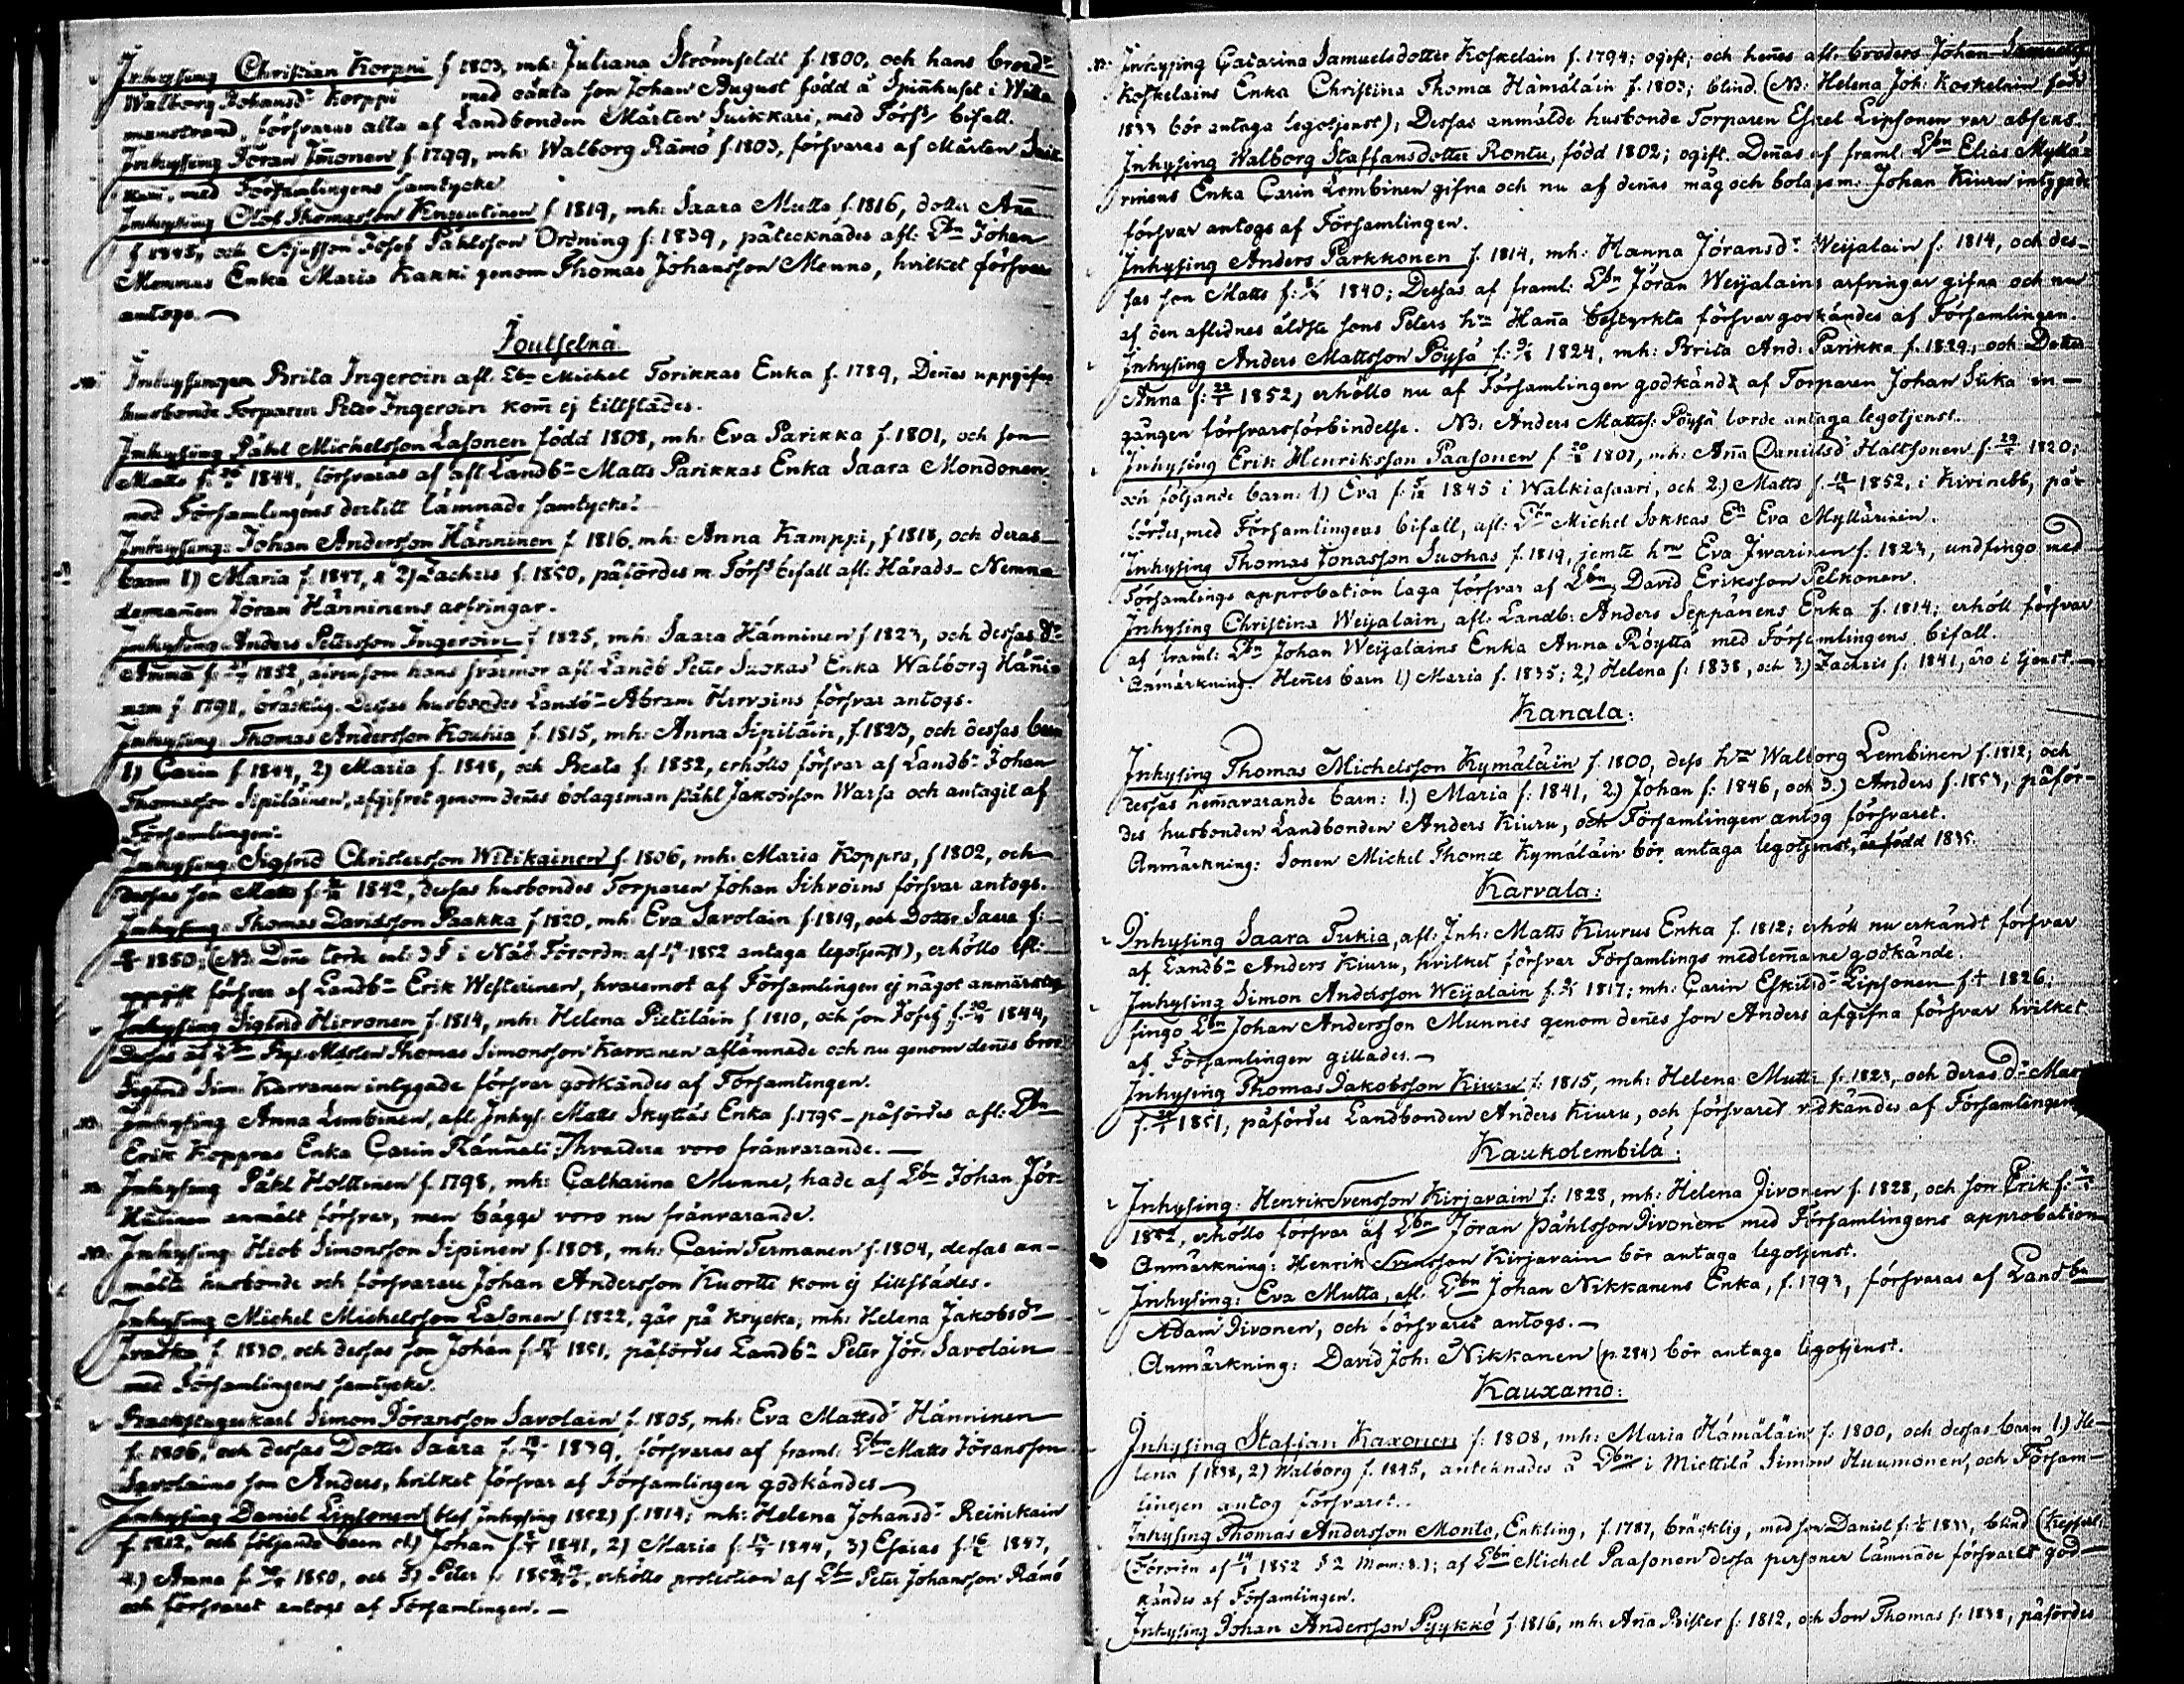 Inhysing Christian Korppi f 1803, mh: Juliana Strömfeldt f. 1800, och hans brord:
Walborg Johansd:r Korppi med oäkta son Johan August född å Spinnhuset i Willa
manstrand, försvaras alla af Landbonden Mårten Suikkari, med Förs:s bifall.
Inhysing Jöran Immonen f. 1799, mh: Walborg Rämö f. 1803, försvaras af Mårten Suik
kari, med Församlingens samtycke
Inhysing Olof Thomasson f. 1819, mh: Saara Mutto f. 1816, dotter Anna
f 1845, och Josef Påhlsson Ordning f: 1839, påtecknades afl: Lbn Johan
Mennas Enka Maria Kakki genom Thomas Johansson Menna, hvilket försvar
antogs. —
Joutselnä
NB: Inhysingen Brita Ingeroin afl. Lbn Michel Torikkas Enka f. 1789, Denes uppgifne
husbonde Torparen Peter Ingeroin kom ej tillstädes.
Inhysing Påhl Michelsson Lasonen född 1808, mh: Eva Parikka f. 1801, och son
Matts f: 1844, försvaras af afl Landb:n Matts Parikkas Enka Saara Mondonen
med Församlingens dertill lämnade samtycke.
Inhysing: Johan Andersson Hänninen f 1816, mh: Anna Kamppi, f 1818, och deras
barn 1) Maria f. 1847, 2) Zachris f. 1850, påfördes m. Förs:s bifall afl: Härads-Nemnde
demannen Jöran Hänninens arfvingar.
Inhysing Anders Petersson Ingeroin f 1825, mh: Saara Hänninen f 1823, och dessas d:r
Anna f: 1852, äfvensom hans svärmor afl Landb Peter Suokas Enka Walborg Hänni
nen f. 1791, bräcklig. Dessas husbondes Landb:n Abram Hirvoins försvar antogs.
Inhysing: Thomas Andersson Kouhia f 1815, mh: Anna Sipiläin, f. 1823, och dessas barn
1) Carin f 1844, 2) Maria f. 1848, och Beata f: 1852, erhöllo försvar af Landb:n Johan
Thomasson Sipiläinen, afgifvet genom denes bolagsman Påhl Jakobsson Warsa och antagit af
Församlingen.
Inhysing: Sigfrid Christersson Witikainen f. 1806, mh: Maria Koppra, f 1802, och
dessas son Matts f: 1842, dessas husbondes Torparen Johan Sihvoins försvar antogs.
Inhysing: Thomas Davidsson Paakka f 1820, mh: Eva Savolain f. 1819, och Dotter Saara f:
1850; (NB: Dene torde enl: 3 § i Nåd. Förordn: af 1852 antaga legotjenst), erhöllo
uppgift försvar af Landb:n Erik Westerinen, hvaremot af Församlingen ej något anmärktes
Inhysing Sigfrid Hirvonen f. 1814, mh: Helena Pietiläin f 1810, och son Josef f. 1844,
Dessas af Lbn Thomas Simonsson Karvanen aflämnade och nu genom denes bror
Sigfrid Sim: Karvanen intygade försvar godkändes af Församlingen.
NB: Inhysing Anna Lembinen, afl: Inhys: Matts Skyttäs Enka f. 1795 - påfördes afl: Lbn
Erik Koppras Enka Carin Rännäli; Hvardera voro frånvarande. —
NB: Inhysing Påhl Holttinen f. 1798, mh: Catharina Menne, hade af Lbn Johan Jör:
Hänninen anmält försvar, men bägge voro nu frånvarande.
NB: Inhysing Hiob Simonsson Sipinen f. 1808, mh: Carin Termanen f. 1804, dessas an-
mälta husbonde och försvarare Johan Andersson Kuortti kom ej tillstädes.
Inhysing Michel Michelsson Lasonen f. 1822, går på krycka, mh: Helena Jakobsd:r
f 1830, och dessas son Johan f. 1851, påfördes Landb:n Peter Jör: Savolain
med Församlingens samtycke.
Backstugukarl Simon Jöransson Savolain f. 1805, mh: Eva Mattsd:r Hänninen
f. 1806, och dessas Dotter Saara f. 1839, försvaras af framl: Lbn Matts Jöransson
Savolains son Anders, hvilket försvar af Församlingen godkändes —
Inhysing Daniel Lipsonen (blef inhysing 1852) f. 1814; mh: Helena Johansd:r Reinikain
f. 1812, och följande barn 1) Johan f. 1841, 2) Maria f. 1844, 3) Esaias f. 1847,
4.) Anna f. 1850, och 5) Peter f: erhöllo protection af Lbn Peter Johansson Rämö
och försvaret antogs af Församlingen. —
NB: Inhysing Catarina Samuelsdotter Koskelain f. 1794; ogift; och henes afl. broders Johan Samuels
Koskelains Enka Christina Thomæ Hämäläin f. 1803; blind. (NB: Helena Joh: Koskelain född
1833 bör antaga legotjenst); Dessas anmälde husbonde Torparen Eskel Lipsonen var absens.
Inhysing Walborg Staffansdotter Rontu, född 1802; ogift. Denas af framl: Lbn Elias Myllä-
rinens Enka Carin Lembinen gifna och nu af denas måg och bolagsm: Johan Kiuru intygade
försvar antogs af Församlingen.
Inhysing Anders Parkkonen f. 1814, mh: Hanna Jöransd:r Weijalain f. 1814, och des-
sas son Matts f: 1840; Dessas af framl: Lbn Jöran Weijalains arfvingar gifna och nu
af den aflidnes äldste sons Peters h:ru Hana bestyrkta försvar godkändes af Församlingen.
Inhysing Anders Mattsson Pöysä f: 1824, mh: Brita And: Parikka f. 1829; och Dotter
Anna f: 1852, erhöllo nu af Församlingen godkänd af Torparen Johan Suka in-
gången försvarsförbindelse. NB: Anders Mattss: Pöysä borde antaga legotjenst.
Inhysing Erik Henriksson Paasonen f. 1807, mh: Anna Danielsd Haltsonen f. 1820;
och följande barn: 1) Eva f: 1845 i Walkiasaari, och 2.) Matts f. 1852, i Kirinebb, på-
fördes, med Församlingens bifall, afl: Lbn Michel Sokkas E:a Eva Myllärinen.
Inhysing Thomas Jonasson Suokas f. 1819, jemte h:ru Eva Iwarinen f. 1823, undfingo med
Församlings approbation laga försvar af Lbn David Eriksson Pelkonen.
Inhysing Christina Weijalain, afl: Landb: Anders Seppänens Enka f. 1814; erhöll försvar
af framl: Lbn Johan Weijalains Enka Anna Röyttä med Församlingens bifall.
Anmärkning. Henes barn 1) Maria f. 1835; 2) Helena f: 1838, och 3.) Zachris f: 1841, äro i tjenst. —
Kanala:
Inhysing Thomas Michelsson Kymäläin f. 1800, dess h:ru Walborg Lembinen f. 1812; och
dessas hemavarande barn: 1.) Maria f: 1841, 2.) Johan f: 1846, och 3.) Anders f. 1853, påför-
des husbonden Landbonden Anders Kiuru, och Församlingen antog försvaret.
Anmärkning: Sonen Michel Thomæ Kymäläin bör antaga legotjenst, är född 1835.
Karvala:
Inhysing Saara Tukia, afl: Inh: Matts Kiurus Enka f. 1812; erhöll nu erkändt försvar
af Landb:n Anders Kiuru, hvilket försvar Församlings medlemmarne godkände.
Inhysing Simon Andersson Weijalain f. 1817; mh: Carin Eskilsd:r Lipsonen f. 1826;
fingo Lbn Johan Andersson Munnes genom denes son Anders afgifna försvar hvilket
af Församlingen gillades. —
Inhysing Thomas Jakobsson Kiuru f. 1815, mh: Helena Mutto f. 1823, och deras d:r Mar
f. 1851, påfördes Landbonden Anders Kiuru, och försvaret vidkändes af Församlingen
Kaukolembilä:
Inhysing: Henrik Svensson Kirjavain f: 1828, mh: Helena Jivonen f. 1828, och son Erik f:
1852, erhöllo försvar af Lbn Jöran Påhlsson Jivonen med Församlingens approbation
Anmärkning: Henrik Svensson Kirjavain bör antaga legotjenst.
Inhysing: Eva Mutta, afl. Lbn Johan Nikkanens Enka, f. 1793, försvaras af Landbn
Adam Jivonen, och försvaret antogs. —
Anmärkning: David Joh: Nikkanen (p. 284) bör antaga legotjenst.
Kauxamo:
Inhysing Staffan Kaxonen f: 1808, mh: Maria Hämäläin f: 1800, och dessas barn 1.) He-
lena f 1838, 2) Walborg f. 1845, antecknades å Lbn i Miettilä Simon Huumonen, och Försam-
lingen antog försvaret.
Inhysing Thomas Andersson Monto, Enkling, f. 1787, bräcklig, med son Daniel f: 1833, blind
(Förordn af 1852 § 2 Mom: 8.); af Lbn Michel Paasonen dessa personer lämnade försvaret god-
kändes af Församlingen.
Inhysing Johan Andersson Pyykkö f. 1816, mh: Anna Bister f: 1812, och Son Thomas f: 1838, påfördes